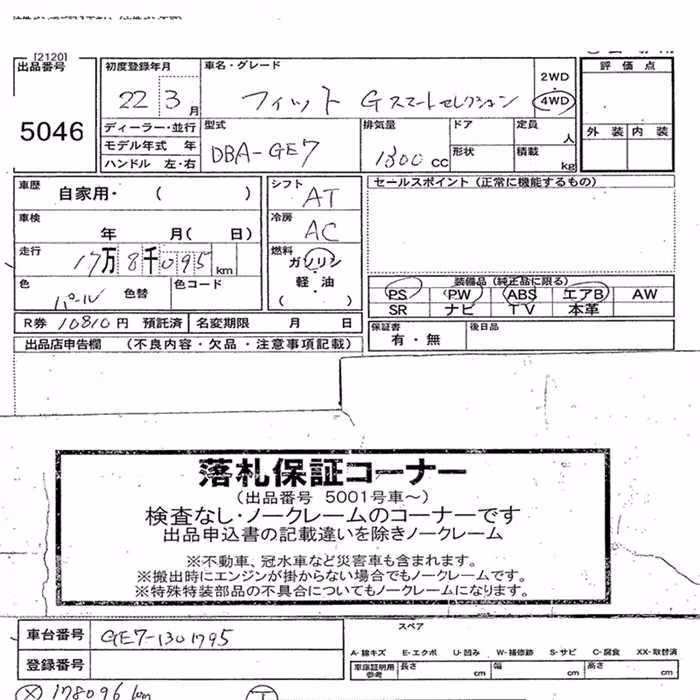 [2120]
出品番号
5046
初度登録年月
22 3月
車名・グレード
フィット Gスマートセレクション
2WD
4WD
評価点
外装 内装
ディーラー・並行
モデル年式 年
ハンドル 左・右
型式
DBA-GE7
排気量
1300cc
ドア
形状
定員 人
積載 kg
車歴
自家用・( )
車検
年 月( 日)
走行
17万8千095km
色
パール
色替
色コード
シフト
AT
冷房
AC
燃料
ガソリン
軽・油
( )
セールスポイント(正常に機能するもの)
装備品(純正品に限る)
PS PW ABS エアB AW
SR ナビ TV 本革
R券 10810円 預託済
名変期限 月 日
保証書
有・無
後日品
出品店申告欄 (不良内容・欠品・注意事項記載)
落札保証コーナー
(出品番号 5001号車~)
検査なし・ノークレームのコーナーです
出品申込書の記載違いを除きノークレーム
※不動車、冠水車など災害車も含まれます。
※搬出時にエンジンが掛からない場合でもノークレームです。
※特殊特装部品の不具合についてもノークレームになります。
車台番号
GE7-1301795
登録番号
スペア
A-線キズ E-エクボ U-凹み W-補修跡 S-サビ C-腐食 XX-取替済
車庫証明用参考
長さ cm
幅 cm
高さ cm
178096km